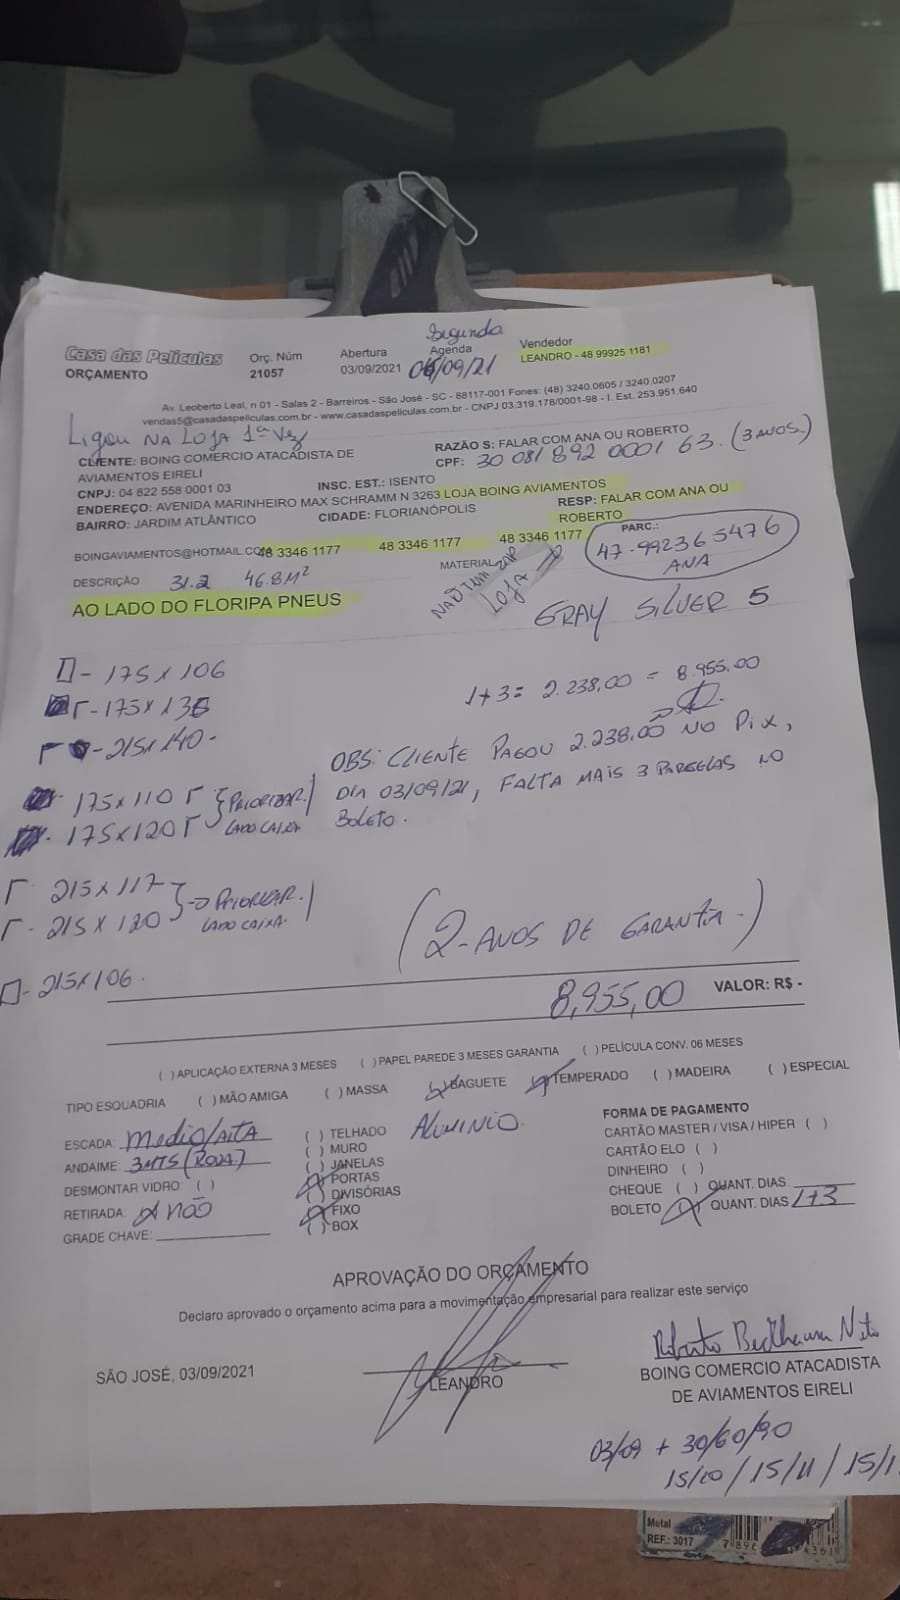 Segunda
Casa das Películas Orç. Núm Abertura Agenda Vendedor
ORÇAMENTO 21057 03/09/2021 06/09/21 LEANDRO - 48 99925 1181
Av. Leoberto Leal, n 01 - Salas 2 - Barreiros - São José - SC - 88117-001 Fones: (48) 3240.0605 / 3240.0207
vendas5@casadaspeliculas.com.br - www.casadaspeliculas.com.br - CNPJ 03.319.178/0001-98 - I. Est. 253.951.640
Ligou NA LOJA 1ª Vez
CLIENTE: BOING COMERCIO ATACADISTA DE RAZÃO S: FALAR COM ANA OU ROBERTO
AVIAMENTOS EIRELI CPF: 30 081 892 0001 63. (3 ANOS.)
CNPJ: 04 822 558 0001 03 INSC. EST.: ISENTO
ENDEREÇO: AVENIDA MARINHEIRO MAX SCHRAMM N 3263 LOJA BOING AVIAMENTOS
BAIRRO: JARDIM ATLÂNTICO CIDADE: FLORIANÓPOLIS RESP: FALAR COM ANA OU
ROBERTO
BOINGAVIAMENTOS@HOTMAIL.CO 48 3346 1177 48 3346 1177 48 3346 1177 PARC.:
47-99236 5476
ANA
DESCRIÇÃO 31.2 46.8 M² MATERIAL
NÃO TEM ZAP
LOJA
AO LADO DO FLORIPA PNEUS
GRAY SILVER 5
- 175 x 106
1+3= 2.238,00 = 8.955,00
- 175 x 135
- 215x140-
OBS: CLIENTE PAGOU 2.238,00 NO PIX,
DIA 03/09/21, FALTA MAIS 3 PARCELAS NO
BOLETO.
175x110 PRIORIZAR.
175x120 LADO CAIXA
215x117 -> PRIORIZAR.
- 215 x 120 LADO CAIXA.
(2-ANOS DE GARANTIA.)
- 215x106.
8,955,00 VALOR: R$ -
( ) APLICAÇÃO EXTERNA 3 MESES ( ) PAPEL PAREDE 3 MESES GARANTIA ( ) PELÍCULA CONV. 06 MESES
TIPO ESQUADRIA ( ) MÃO AMIGA ( ) MASSA (x) BAGUETE (x) TEMPERADO ( ) MADEIRA ( ) ESPECIAL
ALUMINIO.
ESCADA: Medio/Alta
ANDAIME: 3MTS (RODA)
DESMONTAR VIDRO: ( )
RETIRADA: x não
GRADE CHAVE:
( ) TELHADO
( ) MURO
( ) JANELAS
(x) PORTAS
( ) DIVISÓRIAS
(x) FIXO
( ) BOX
FORMA DE PAGAMENTO
CARTÃO MASTER / VISA / HIPER ( )
CARTÃO ELO ( )
DINHEIRO ( )
CHEQUE ( ) QUANT. DIAS
BOLETO (x) QUANT. DIAS 1+3
APROVAÇÃO DO ORÇAMENTO
Declaro aprovado o orçamento acima para a movimentação empresarial para realizar este serviço
SÃO JOSÉ, 03/09/2021
LEANDRO
Roberto Neto
BOING COMERCIO ATACADISTA
DE AVIAMENTOS EIRELI
03/09 + 30/60/90
15/10 / 15/11 / 15/1
Metal
REF.: 3017